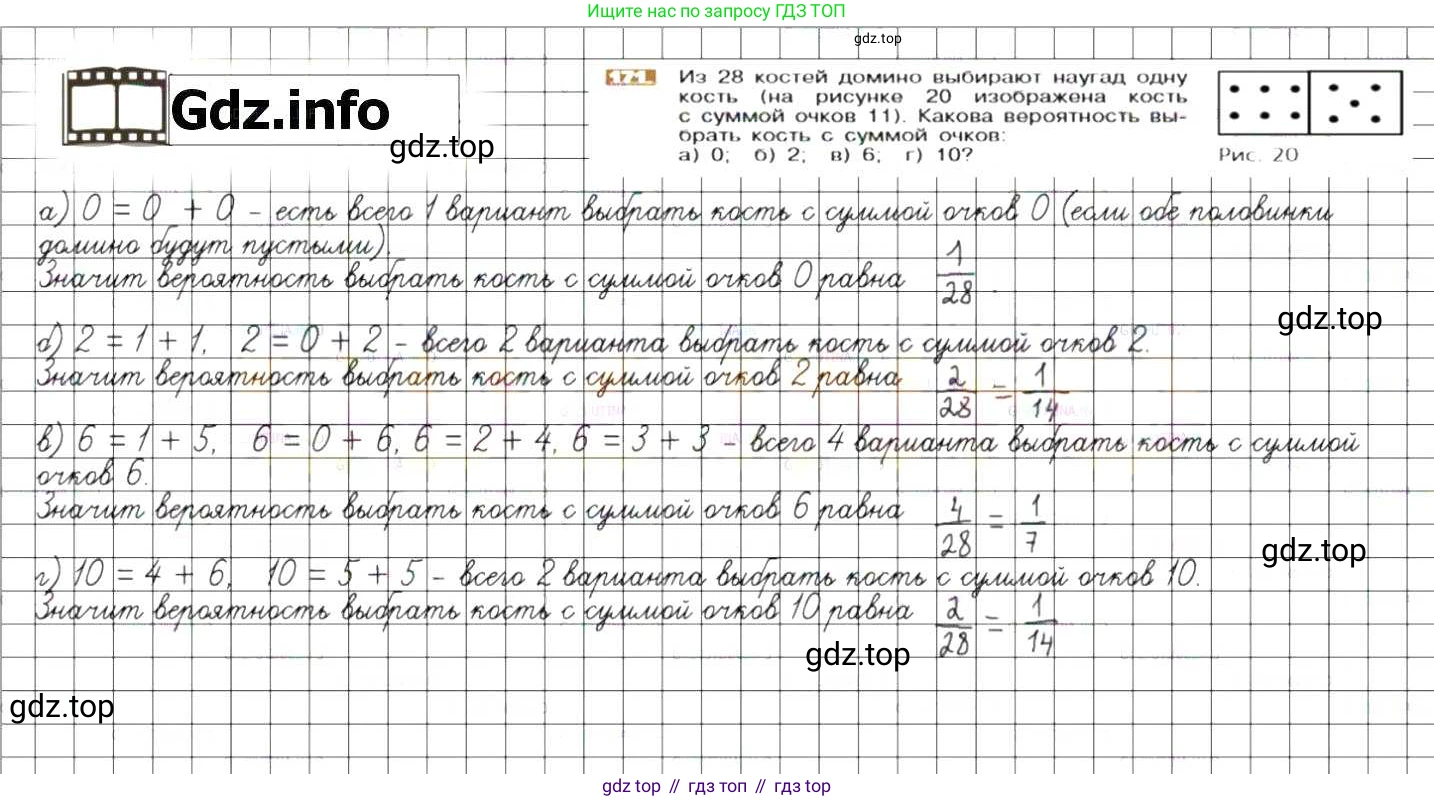 Ищите нас по запросу ГДЗ ТОП
gdz.top
Gdz.info
gdz.top
171. Из 28 костей домино выбирают наугад одну
кость (на рисунке 20 изображена кость
с суммой очков 11). Какова вероятность вы-
брать кость с суммой очков:
а) 0; б) 2; в) 6; г) 10?
Рис. 20
а) 0 = 0 + 0 - есть всего 1 вариант выбрать кость с суммой очков 0 (если обе половинки
домино будут пустыми).
Значит вероятность выбрать кость с суммой очков 0 равна 1/28.
gdz.top
б) 2 = 1 + 1, 2 = 0 + 2 - всего 2 варианта выбрать кость с суммой очков 2.
Значит вероятность выбрать кость с суммой очков 2 равна 2/28 = 1/14
в) 6 = 1 + 5, 6 = 0 + 6, 6 = 2 + 4, 6 = 3 + 3 - всего 4 варианта выбрать кость с суммой
очков 6.
Значит вероятность выбрать кость с суммой очков 6 равна 4/28 = 1/7
gdz.top
г) 10 = 4 + 6, 10 = 5 + 5 - всего 2 варианта выбрать кость с суммой очков 10.
Значит вероятность выбрать кость с суммой очков 10 равна 2/28 = 1/14
gdz.top
gdz.top
gdz top // гдз топ // гдз top